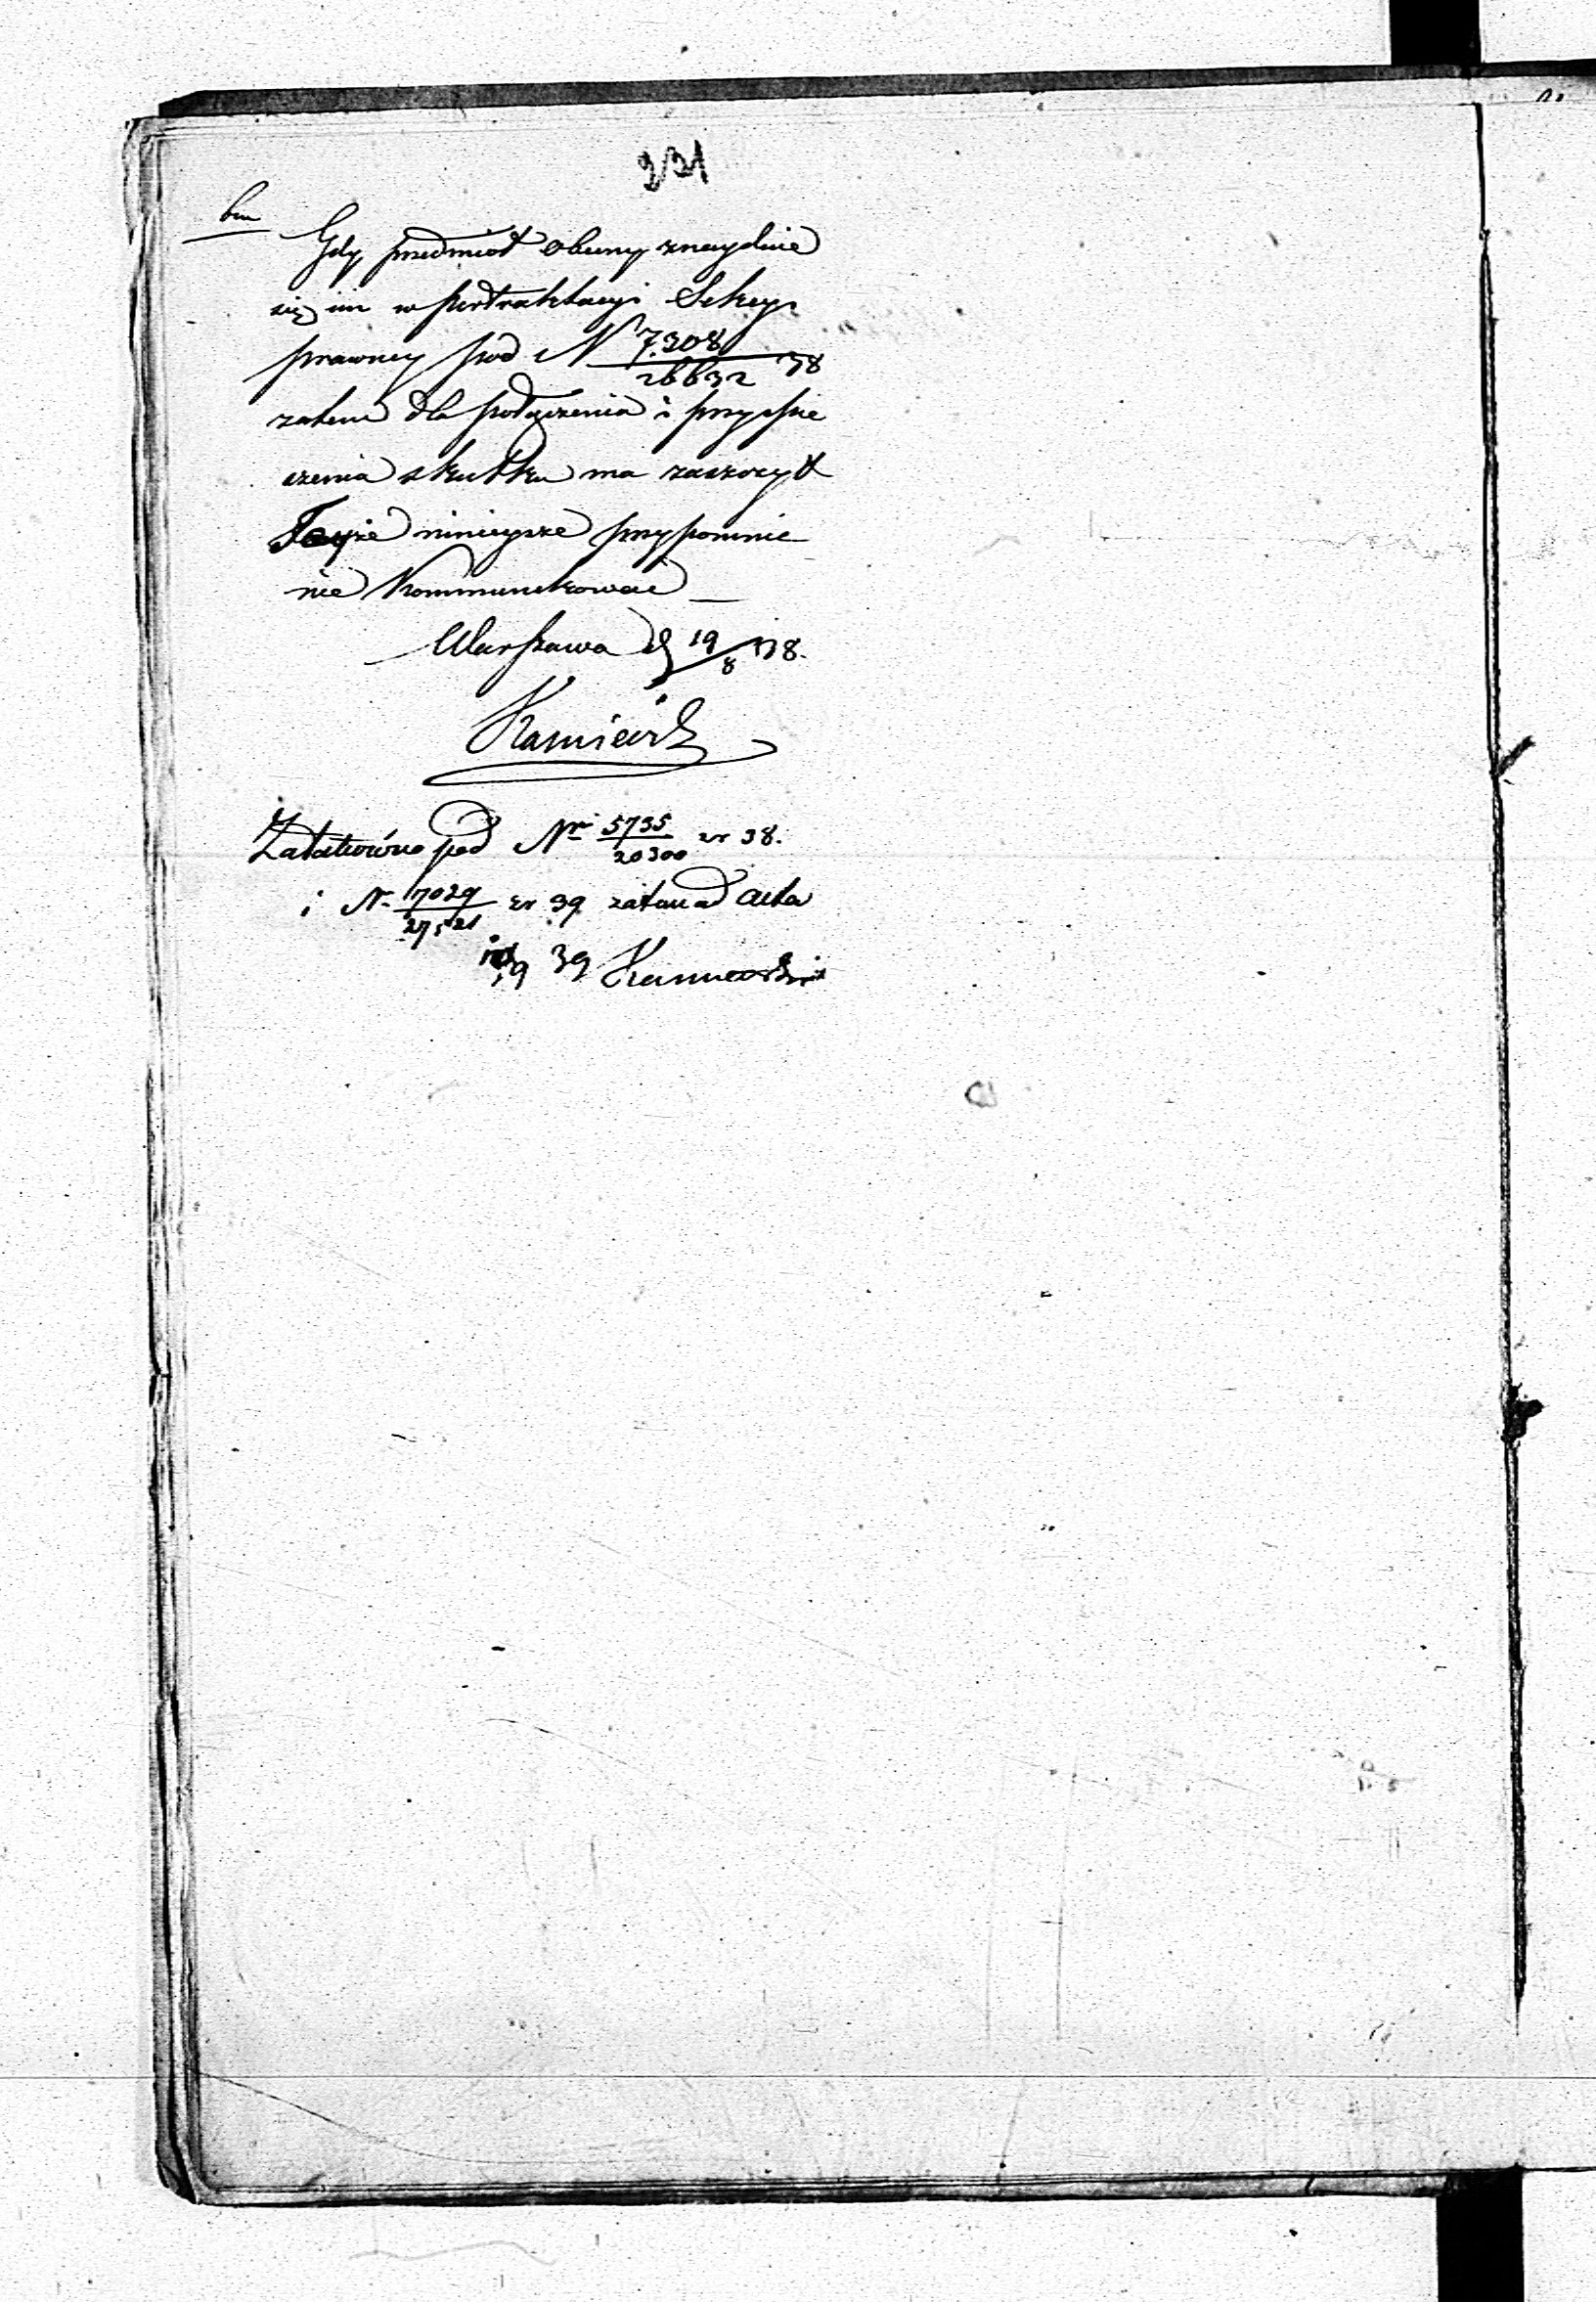 231
Gdy przedmiot obecny znayduie
się im w pertraktacyi Sekcyi
prawney pod N 7.308/26632 38
zatem dla połączenia i przyspie
szenia skutku ma zaszczyt
Teyże ninieysze przypomnie
nie kommunikować
Warszawa d 19/8 38.
Zatatwiono pod Nr 5735/20300 zr 38.
i N. 7029/27521 zr 39 zatem ad acta
39